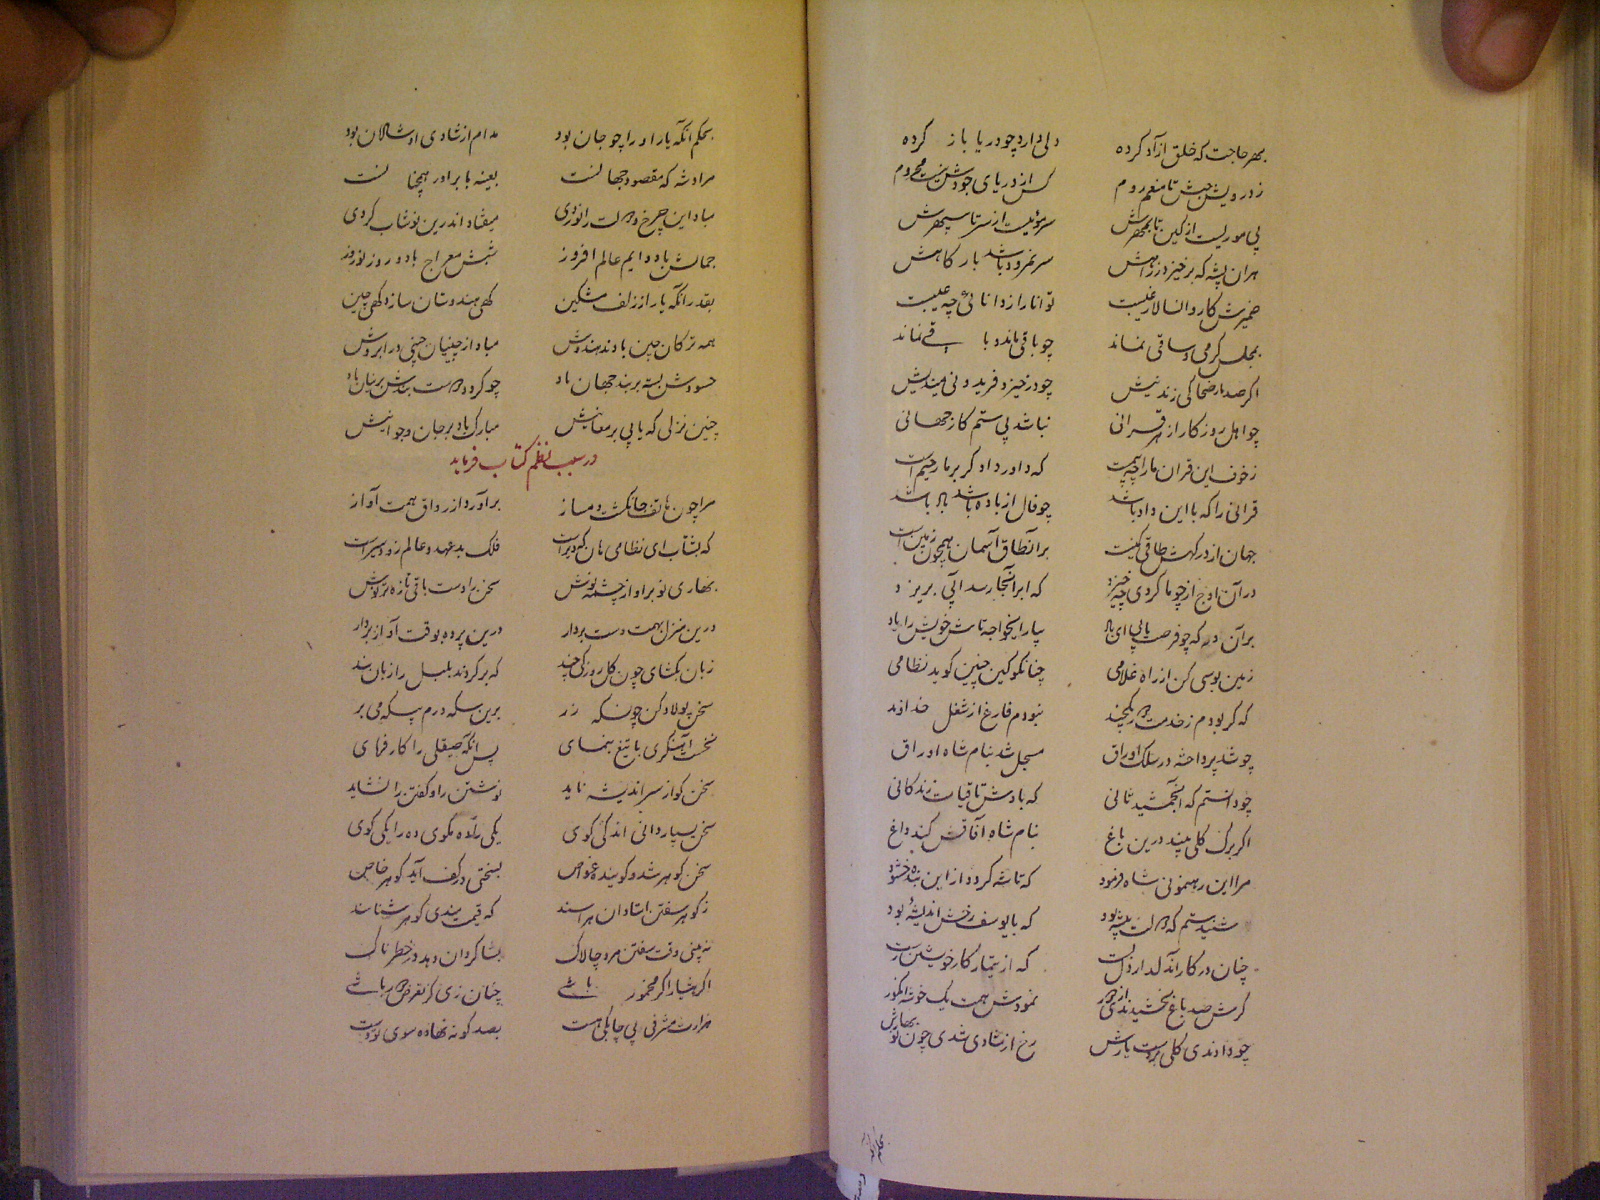 بهر حاجت که خلق آزاد کرده دلی دارد چو دریا باز کرده
ز درویش حبش تا منعم روم کس از دریای جودش نیست محروم
پی موریست از کین تا بمهرش سر موئیست از سر تا سپهرش
هر آن پشه که برخیزد ز راهش سر نمرود باشد بار کاهش
ضمیرش کاروانسالار غیبست توانا را ز دانائی چه عیبست
بمجلس گر می و ساقی نماند چو باقی ماند و باقی نماند
اگر صد بار ضحاکی زند نیش چو در خیزد فریدونی میندیش
چو اهل روزکار از هر قرانی نباشد بی ستم کاز جهانی
ز خوف این قران ما را چه بیمست که داور دادگر بر ما رحیمست
قرانی را که با این داد باشد چو فال از باده باشد باد باشد
جهان از درگهش طاقی کمینست بر آن طاق آسمان همچون زمین است
در آن اوج از چو ما گردی چه خیزد که ابر آنجا رسد آبی بریزد
بر آن در که چو فرصت یابی ای باد بیار این خواجه تاش خویش را یاد
زمین بوسی کن از راه غلامی چنان گو کین چنین گوید نظامی
که گر بودم ز خدمت دور یکچند نبودم فارغ از شغل خداوند
چو شد پرداخته در سلک اوراق مسجل شد بنام شاه اوراق
چو دانستم که آن جمشید ثانی که بادش تا قیامت زندگانی
اگر برگ گلی بیند درین باغ بنام شاه آفاقش کند داغ
مرا این رهنمونی شاه فرمود که تا شه گردد از این بنده خشنود
شنیدستم که دولت پیشه بود که با یوسف رخش اندیشه بود
چنان در کار آن دلدار دل بست که از تیمار کار خویشتن رست
گرش صد باغ بخشیدندی از دور نمودش همت یک خوشه انگور
چو دادندی گلی بر دست یارش رخ از شادی شدی چون نو بهارش
بحکم آنکه یار او را چو جان بود مدام از شادی او شادمان بود
مراد شه که مقصود جهانست بعینه با برادر همچنانست
مباد این چرخ دولت را نوردی میفتاد اندرین نوشاب گردی
جمالش باد دایم عالم افروز شبش معراج باد و روز نوروز
بقدر آنکه یار از زلف مشکین گهی هندوستان سازد گهی چین
همه ترکان چین بادند هندوش مباد از چینیان چینی در ابروش
حسودش بسته بربند جهان باد چو گردد دوست بندش پرنیان باد
چنین نزلی که یابی پر معانیش مبارک باد بر جان و جوانیش
در سبب نظم کتاب فرماید
مرا چون هاتف جان گشت دمساز برآورد از رواق همت آواز
که بشتاب ای نظامی هان که دیرست فلک بدعهد و عالم زود سیرست
بهاری نو برآور از چشمه نوش سخن را دست باقی تازه در پوش
درین منزل بهمت دست بردار درین پرده بوقت آواز بردار
زبان بگشای چون گل روزکی چند که پر کردند بلبل را زبان بند
سخن پولاد کن چون سکه زر برین سکه درم سکه می بر
نخست آهنگری با تیغ بنمای پس آنگه صیقلی را کار فرمای
سخن کو از سر اندیشه ناید نوشتن را و گفتن را نشاید
سخن بسیار دانی اندکی گوی یکی را ده مگوی ده را یکی گوی
سخن گوهر شد و گوینده غواص بسختی در کف آید گوهر خاص
ز گوهر سفتن استادان هراسند که قیمت مندی گوهر شناسند
نه بینی وقت سفتن مرد چالاک بشاگردان دهد در خطرناک
اگر هشیار اگر مخمور باشی چنان زی کز تعرض دور باشی
هزارت مشرفی پی چابکی هست بصد گونه نهاده سوی تو دست